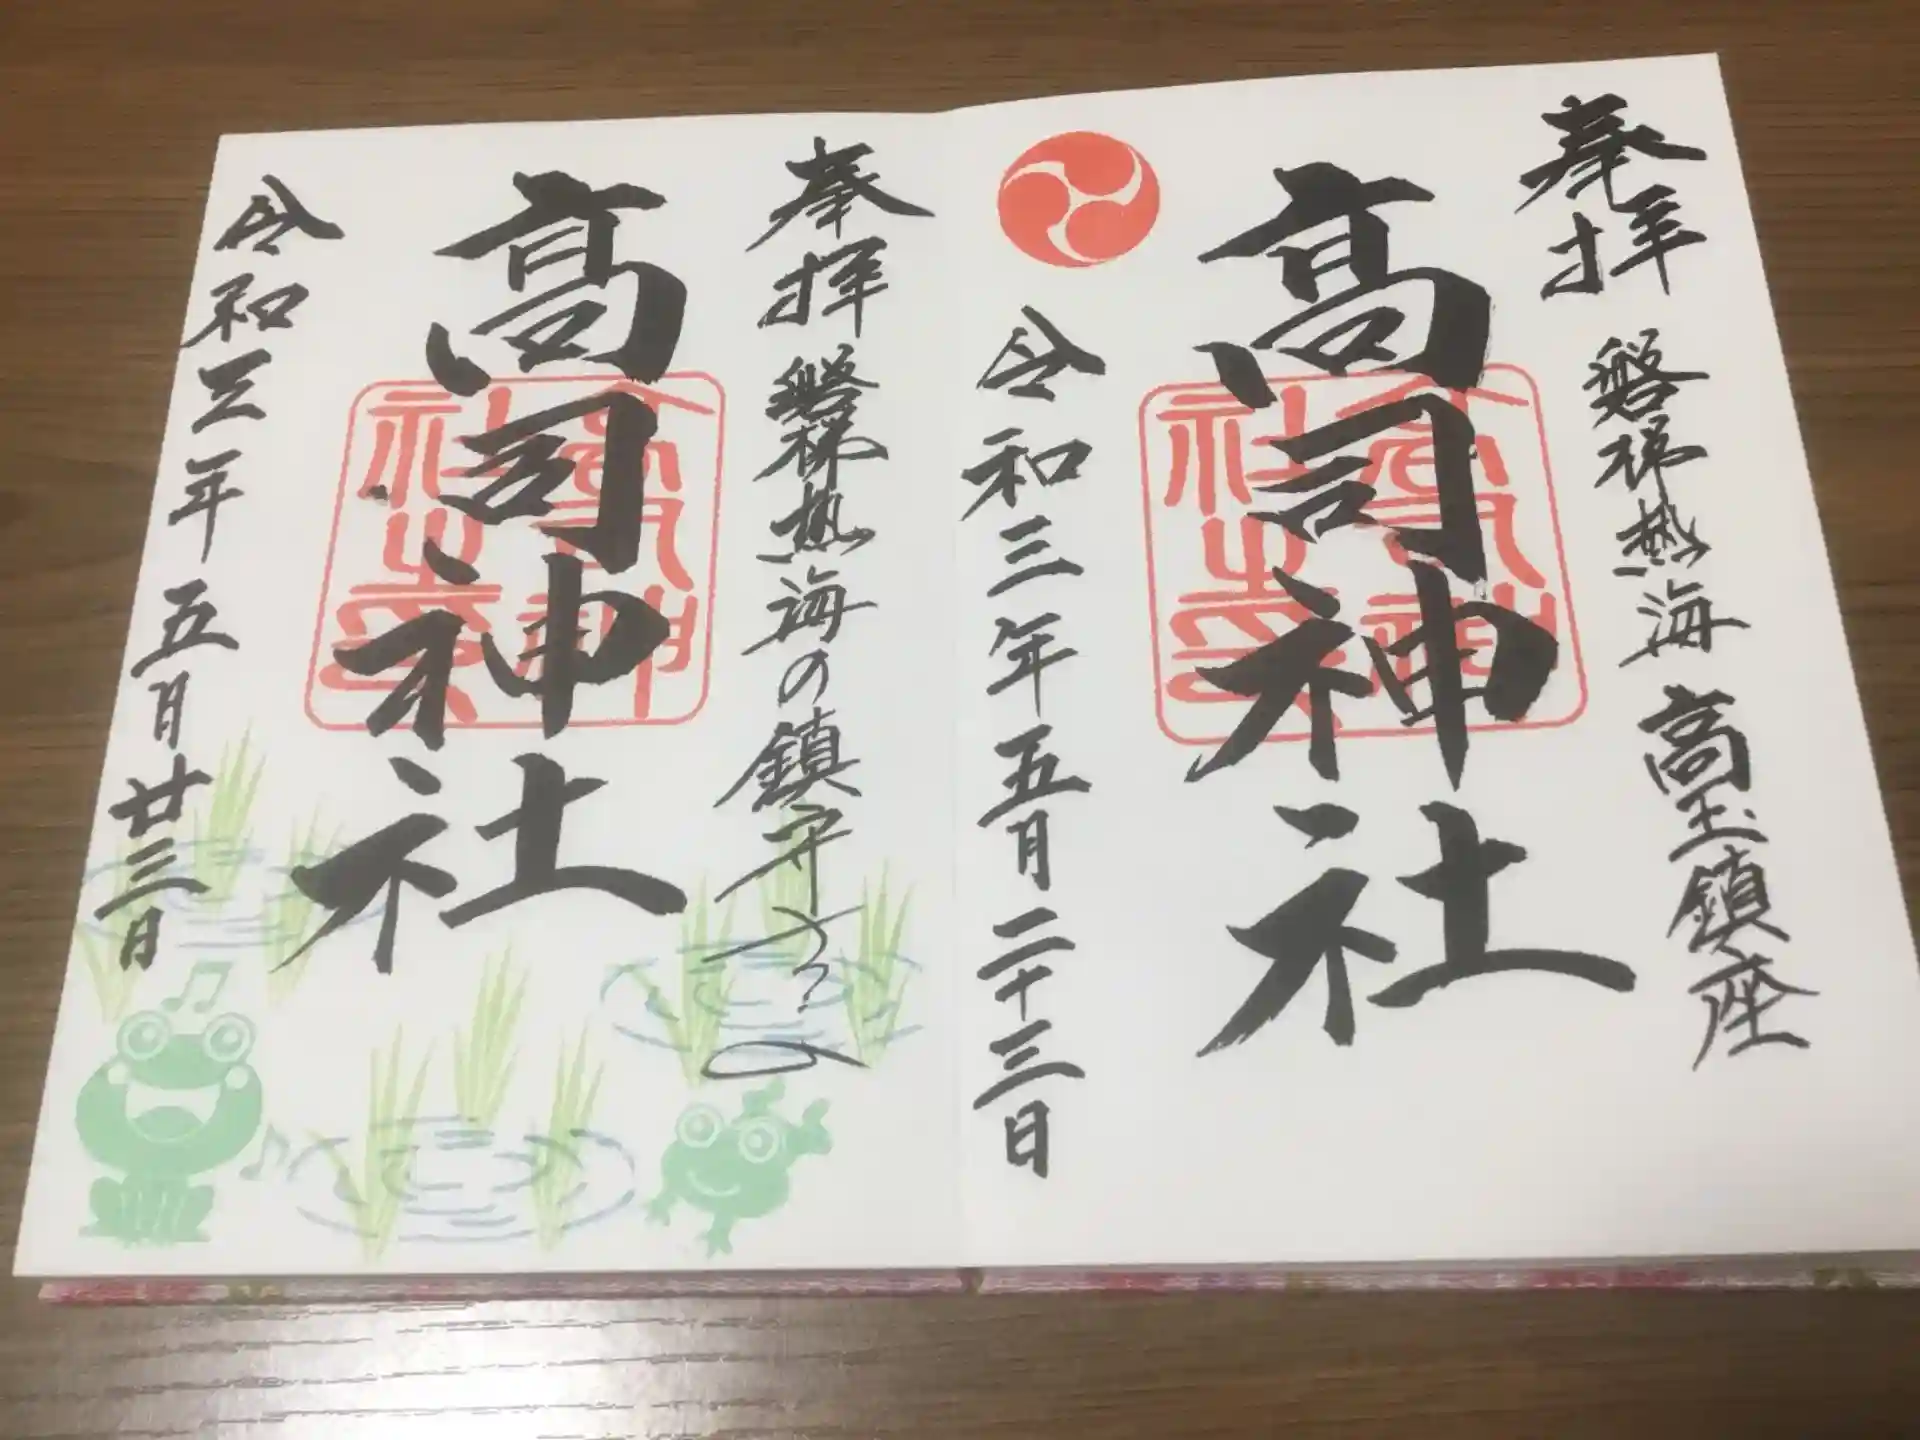 奉拝
磐梯熱海 高玉鎮座
高司神社
令和三年五月二十三日
奉拝
磐梯熱海の鎮守さの
高司神社
令和三年五月廿三日